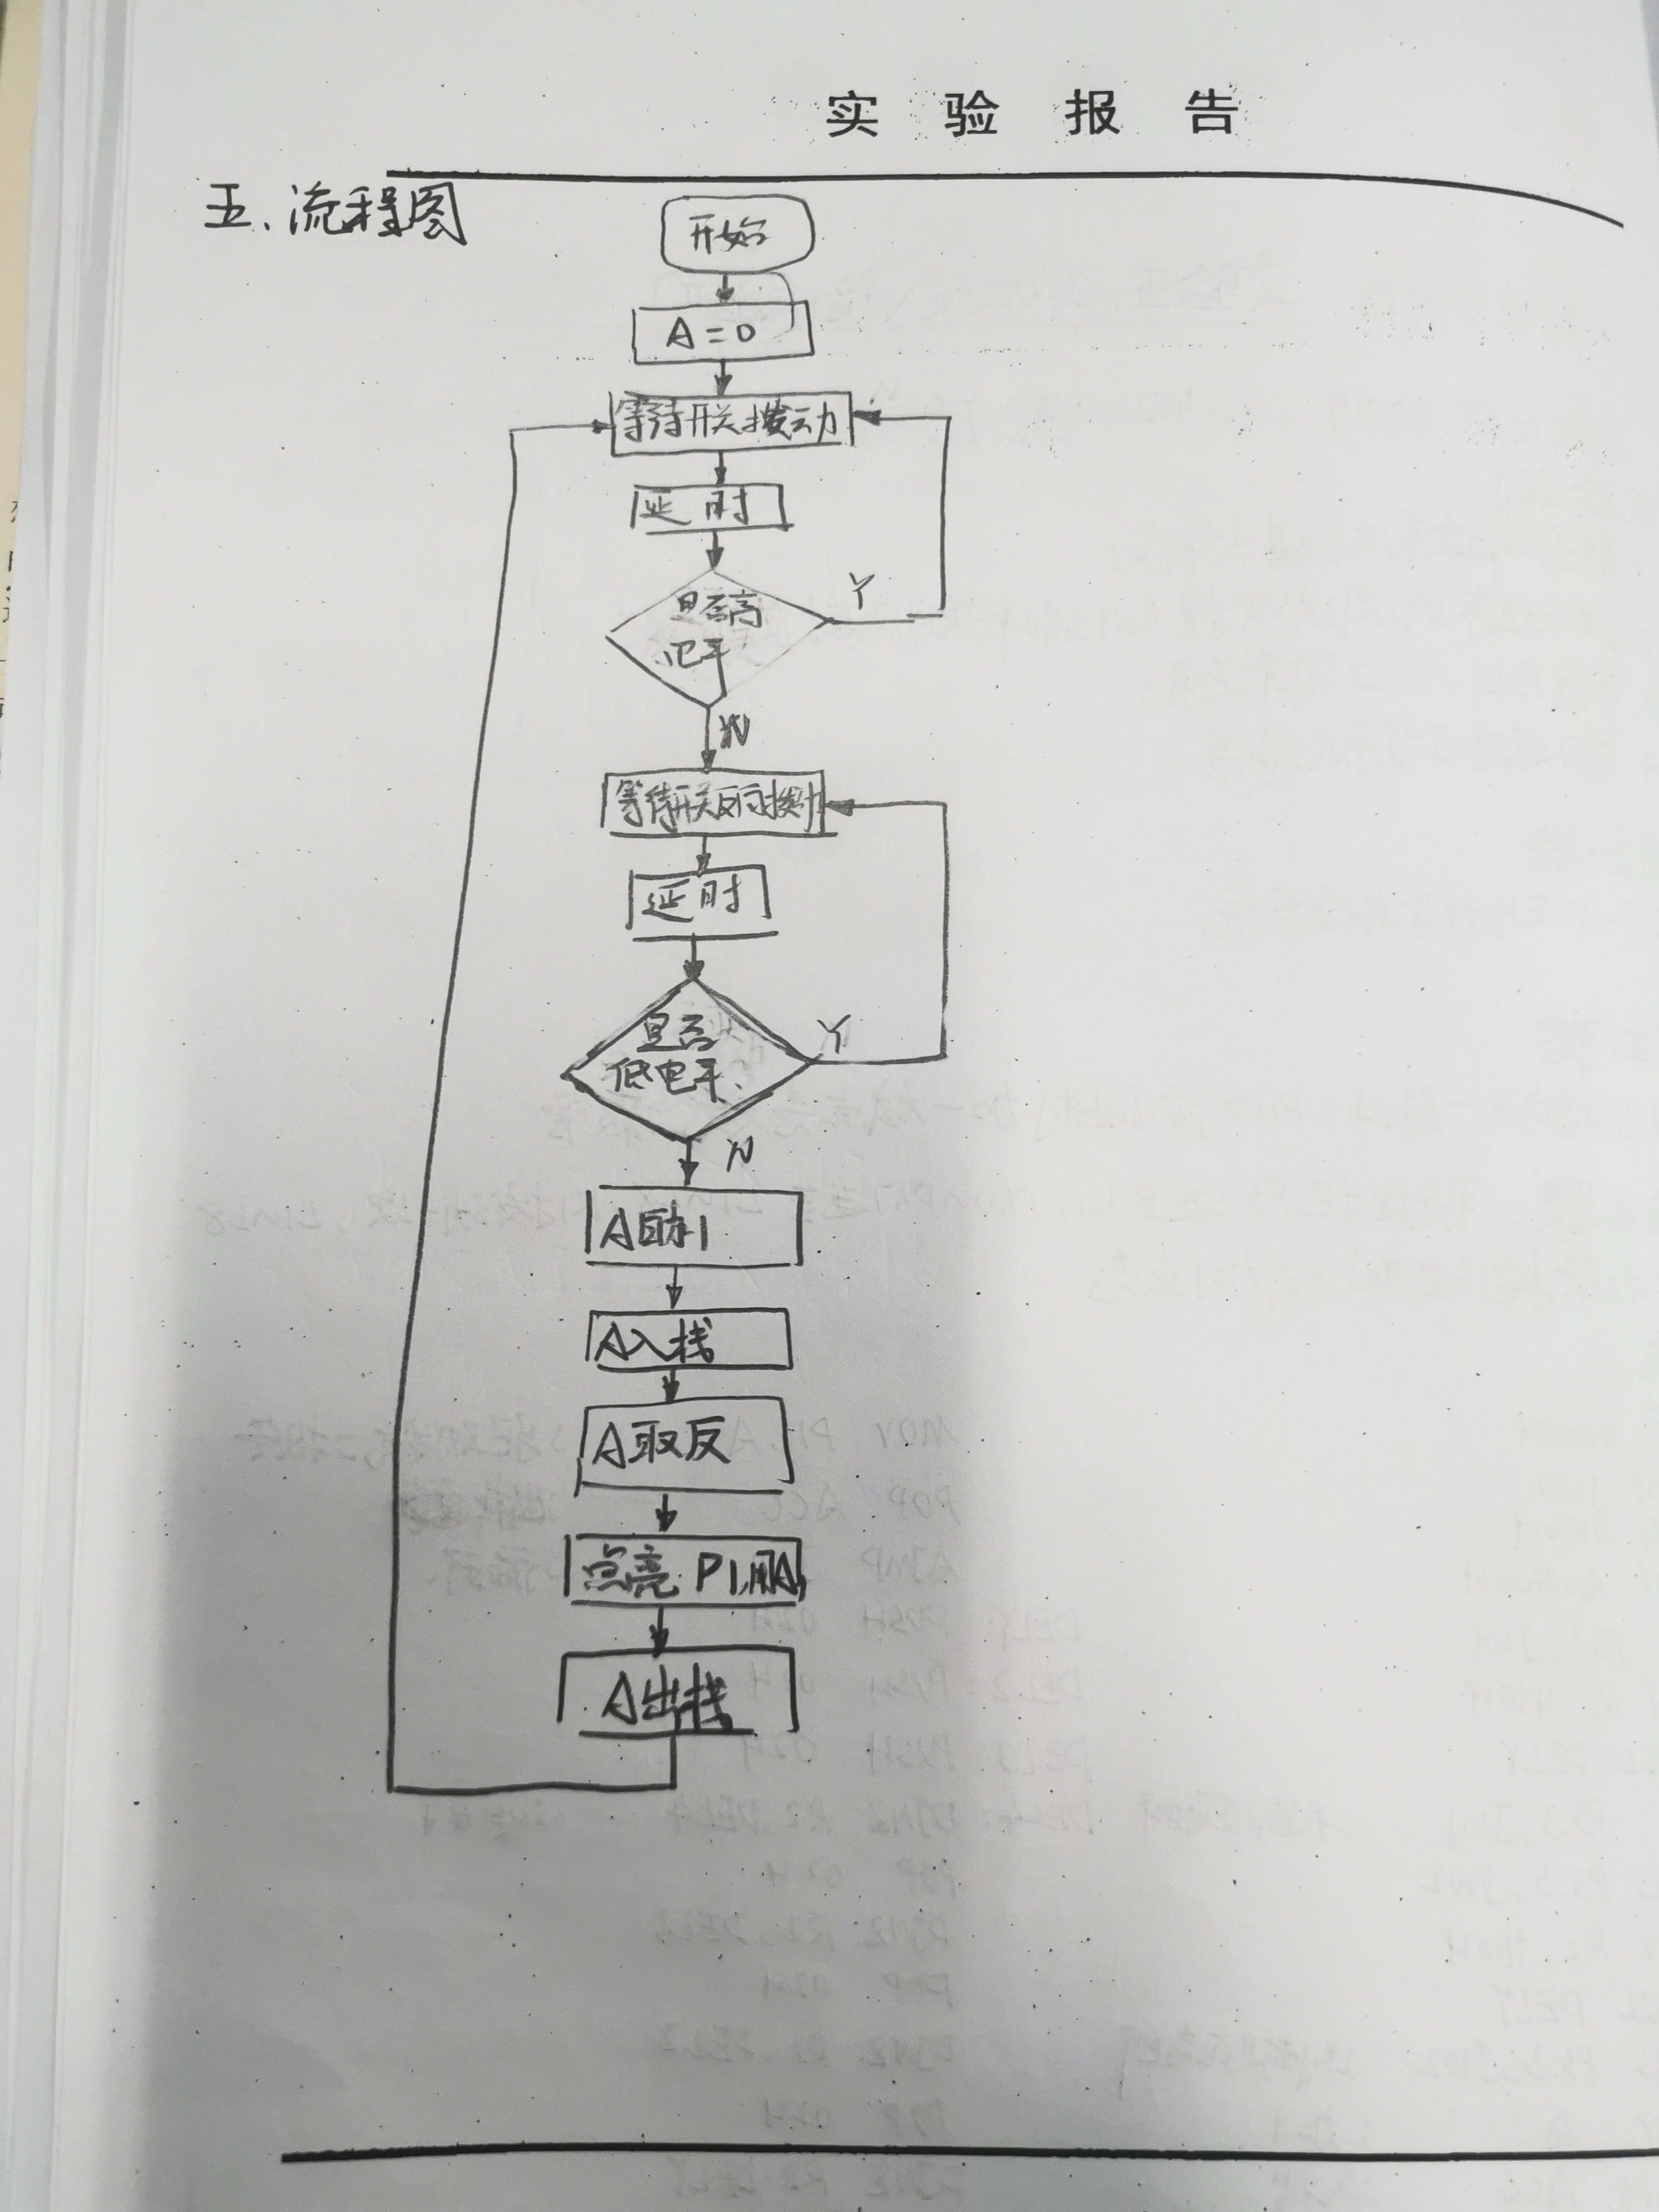 实验报告
五、流程图
开始
A=0
等待开关拨动
延时
是否高
电平
Y
N
等待开关反向拨动
延时
是否
低电平
Y
N
A自加1
A入栈
A取反
点亮P1口
A出栈